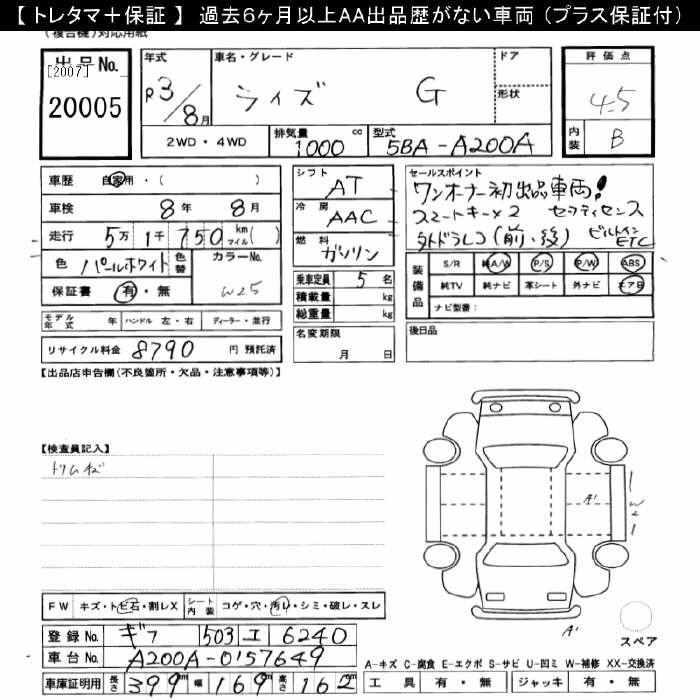 【 トレタマ＋保証 】 過去６ヶ月以上AA出品歴がない車両（プラス保証付）
(複合機)対応用紙
出品No. [2007] 20005
年式 R3/8月
車名・グレード ライズ G
ドア 形状
評価点 4.5
内装 B
2WD・4WD 排気量 1000 cc 型式 5BA-A200A
車歴 自家用・( )
車検 8年 8月
走行 5万1千750 km マイル( )
色 パールホワイト 色替 カラーNo. W25
保証書 有・無
モデル年式 年 ハンドル 左・右 ディーラー・並行
リサイクル料金 8790 円 預託済
シフト AT
冷房 AAC
燃料 ガソリン
乗車定員 5 名
積載量 kg
総重量 kg
名変期限 月 日
セールスポイント
ワンオーナー初出品車両!
スマートキー×2 セーフティセンス
外ドラレコ(前・後) ビルトインETC
装備品 S/R 純A/W P/S P/W ABS
純TV 純ナビ 革シート 外ナビ エアB
ナビ型番：
後日品
【出品店申告欄(不良箇所・欠品・注意事項等)】
【検査員記入】
トリムキズ
A1
W2
A1
スペア
FW キズ・トビ石・割レX シート内装 コゲ・穴・汚レ・シミ・破レ・スレ
登録No. ギフ 503 エ 6240
車台No. A200A-0157649
車庫証明用 長さ 399 cm 幅 169 cm 高さ 162 cm
A-キズ C-腐食 E-エクボ S-サビ U-凹ミ W-補修 XX-交換済
工具 有・無 ジャッキ 有・無